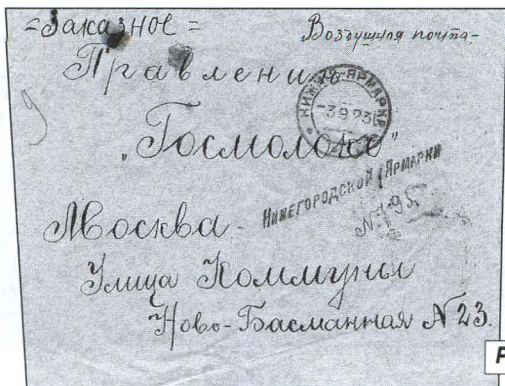 =Заказное=
Воздушная почта-
Правлению
НИЖЕГ.-ЯРМАРКА
3 9 23
„Госмолоко“
НИЖЕГОРОДСКОЙ ЯРМАРКИ
№195
Москва-
Улица Коммуны
Ново-Басманная №23.
Р